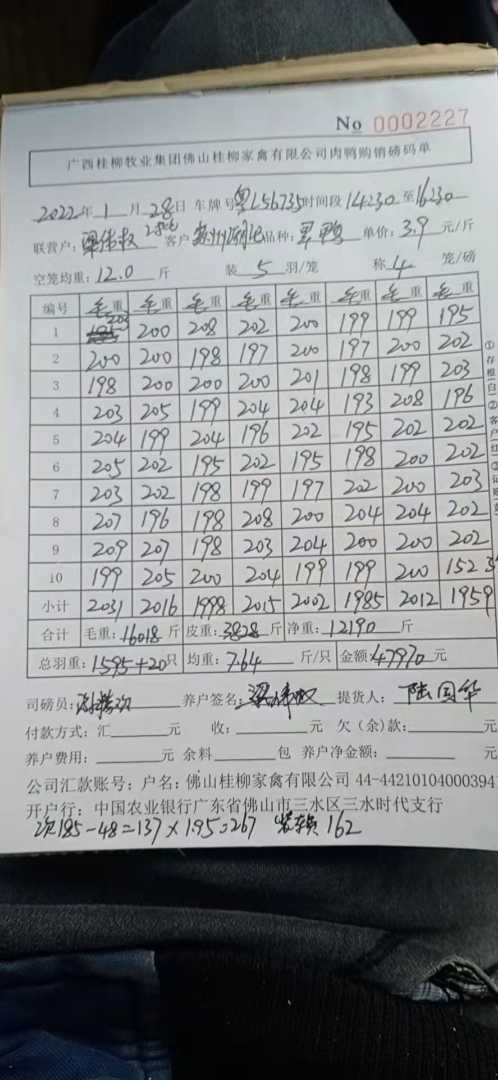 No 0002227
广西桂柳牧业集团佛山桂柳家禽有限公司肉鸭购销磅码单
2022年 1 月 28日 车牌号 粤L56735 时间段 14:30 至 16:30
联营户: 客户 品种: 黑鸭 单价: 3.9 元/斤
空笼均重: 12.0 斤 装 5 羽/笼 称 4 笼/磅
编号 毛重 毛重 毛重 毛重 毛重 毛重 毛重 毛重
1 203 200 208 202 200 199 199 195
2 200 200 198 197 200 197 200 202
3 198 200 200 200 201 198 199 203
4 203 205 199 204 204 193 208 196
5 204 199 204 196 202 195 202 202
6 205 202 195 202 195 198 200 202
7 203 202 198 199 197 202 200 203
8 207 196 198 208 200 204 204 202
9 209 207 198 203 204 200 200 202
10 199 205 200 204 199 199 200 152
小计 2031 2016 1998 2015 2002 1985 2012 1959
合计 毛重: 16018 斤 皮重: 3828 斤 净重: 12190 斤
总羽重: 1595+20 只 均重: 7.64 斤/只 金额: 47970 元
司磅员: 养户签名: 提货人: 陆国华
付款方式: 汇 元 收: 元 欠(余)款: 元
养户费用: 元 余料 包 养户净金额: 元
公司汇款账号: 户名: 佛山桂柳家禽有限公司 44-44210104000394
开户行: 中国农业银行广东省佛山市三水区三水时代支行
次185-48=137×1.95=267 装车费 162
①存根(白)②客户(红)③